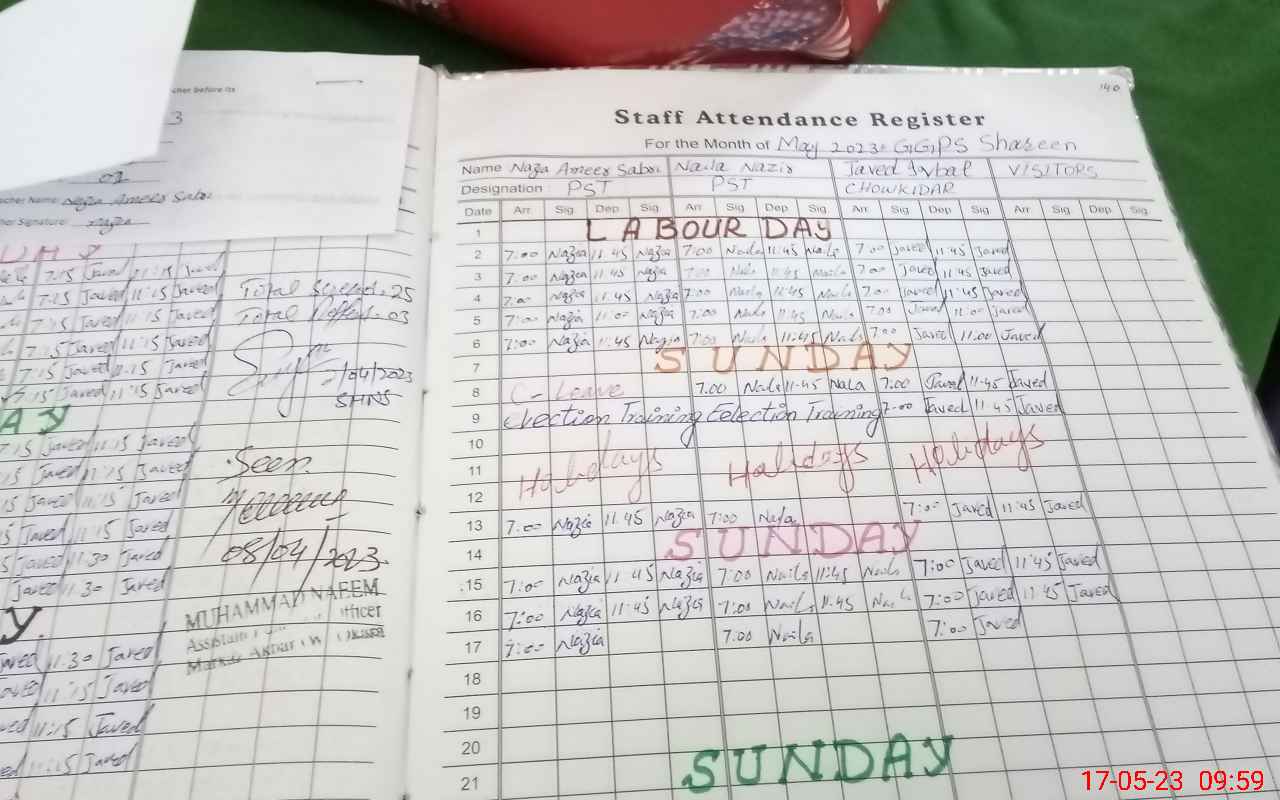 cher before its
3
01
cher Name: Nazia Ameer Sabir
her Signature: Nazia
7:15 Javed 11:15 Javed
7:15 Javed 11:15 Javed
7:15 Javed 11:15 Javed
7:15 Javed 11:15 Javed
7:15 Javed 11:15 Javed
7:15 Javed 11:15 Javed
AY
7:15 Javed 11:15 Javed
:15 Javed 11:15 Javed
15 Javed 11:15 Javed
15 Javed 11:15 Javed
5 Javed 11:30 Javed
Javed 11:30 Javed
y.
Javed 11:30 Javed
11:15 Javed
ved 11:15 Javed
ed 11:15 Javed
Total
25
Total
03
/04/2023
SHNS
Seen
08/04/2023
MUHAMMAD NAEEM
Officer
140
Staff Attendance Register
For the Month of May 2023 GGPS Shaheen
Name Nazia Ameer Sabir Naila Nazir Javed Iqbal VISITORS
Designation : PST PST CHOWKIDAR
Date Arr Sig Dep Sig Arr Sig Dep Sig Arr Sig Dep Sig Arr Sig Dep Sig
1 LABOUR DAY
2 7:00 Nazia 11:45 Nazia 7:00 Naila 11:45 Naila 7:00 Javed 11:45 Javed
3 7:00 Nazia 11:45 Nazia 7:00 Naila 11:45 Naila 7:00 Javed 11:45 Javed
4 7:00 Nazia 11:45 Nazia 7:00 Naila 11:45 Naila 7:00 Javed 11:45 Javed
5 7:00 Nazia 11:00 Nazia 7:00 Naila 11:45 Naila 7:00 Javed 11:00 Javed
6 7:00 Nazia 11:45 Nazia 7:00 Naila 11:45 Naila 7:00 Javed 11:00 Javed
7 SUNDAY
8 C-Leave 7:00 Naila 11:45 Naila 7:00 Javed 11:45 Javed
9 Election Training Eelection Training 7:00 Javed 11:45 Javed
10
11 Holidays Holidays Holidays
12
13 7:00 Nazia 11:45 Nazia 7:00 Naila 7:00 Javed 11:45 Javed
14 SUNDAY
15 7:00 Nazia 11:45 Nazia 7:00 Naila 11:45 Naila 7:00 Javed 11:45 Javed
16 7:00 Nazia 11:45 Nazia 7:00 Naila 11:45 Naila 7:00 Javed 11:45 Javed
17 7:00 Nazia 7:00 Naila 7:00 Javed
18
19
20
21 SUNDAY
17-05-23 09:59